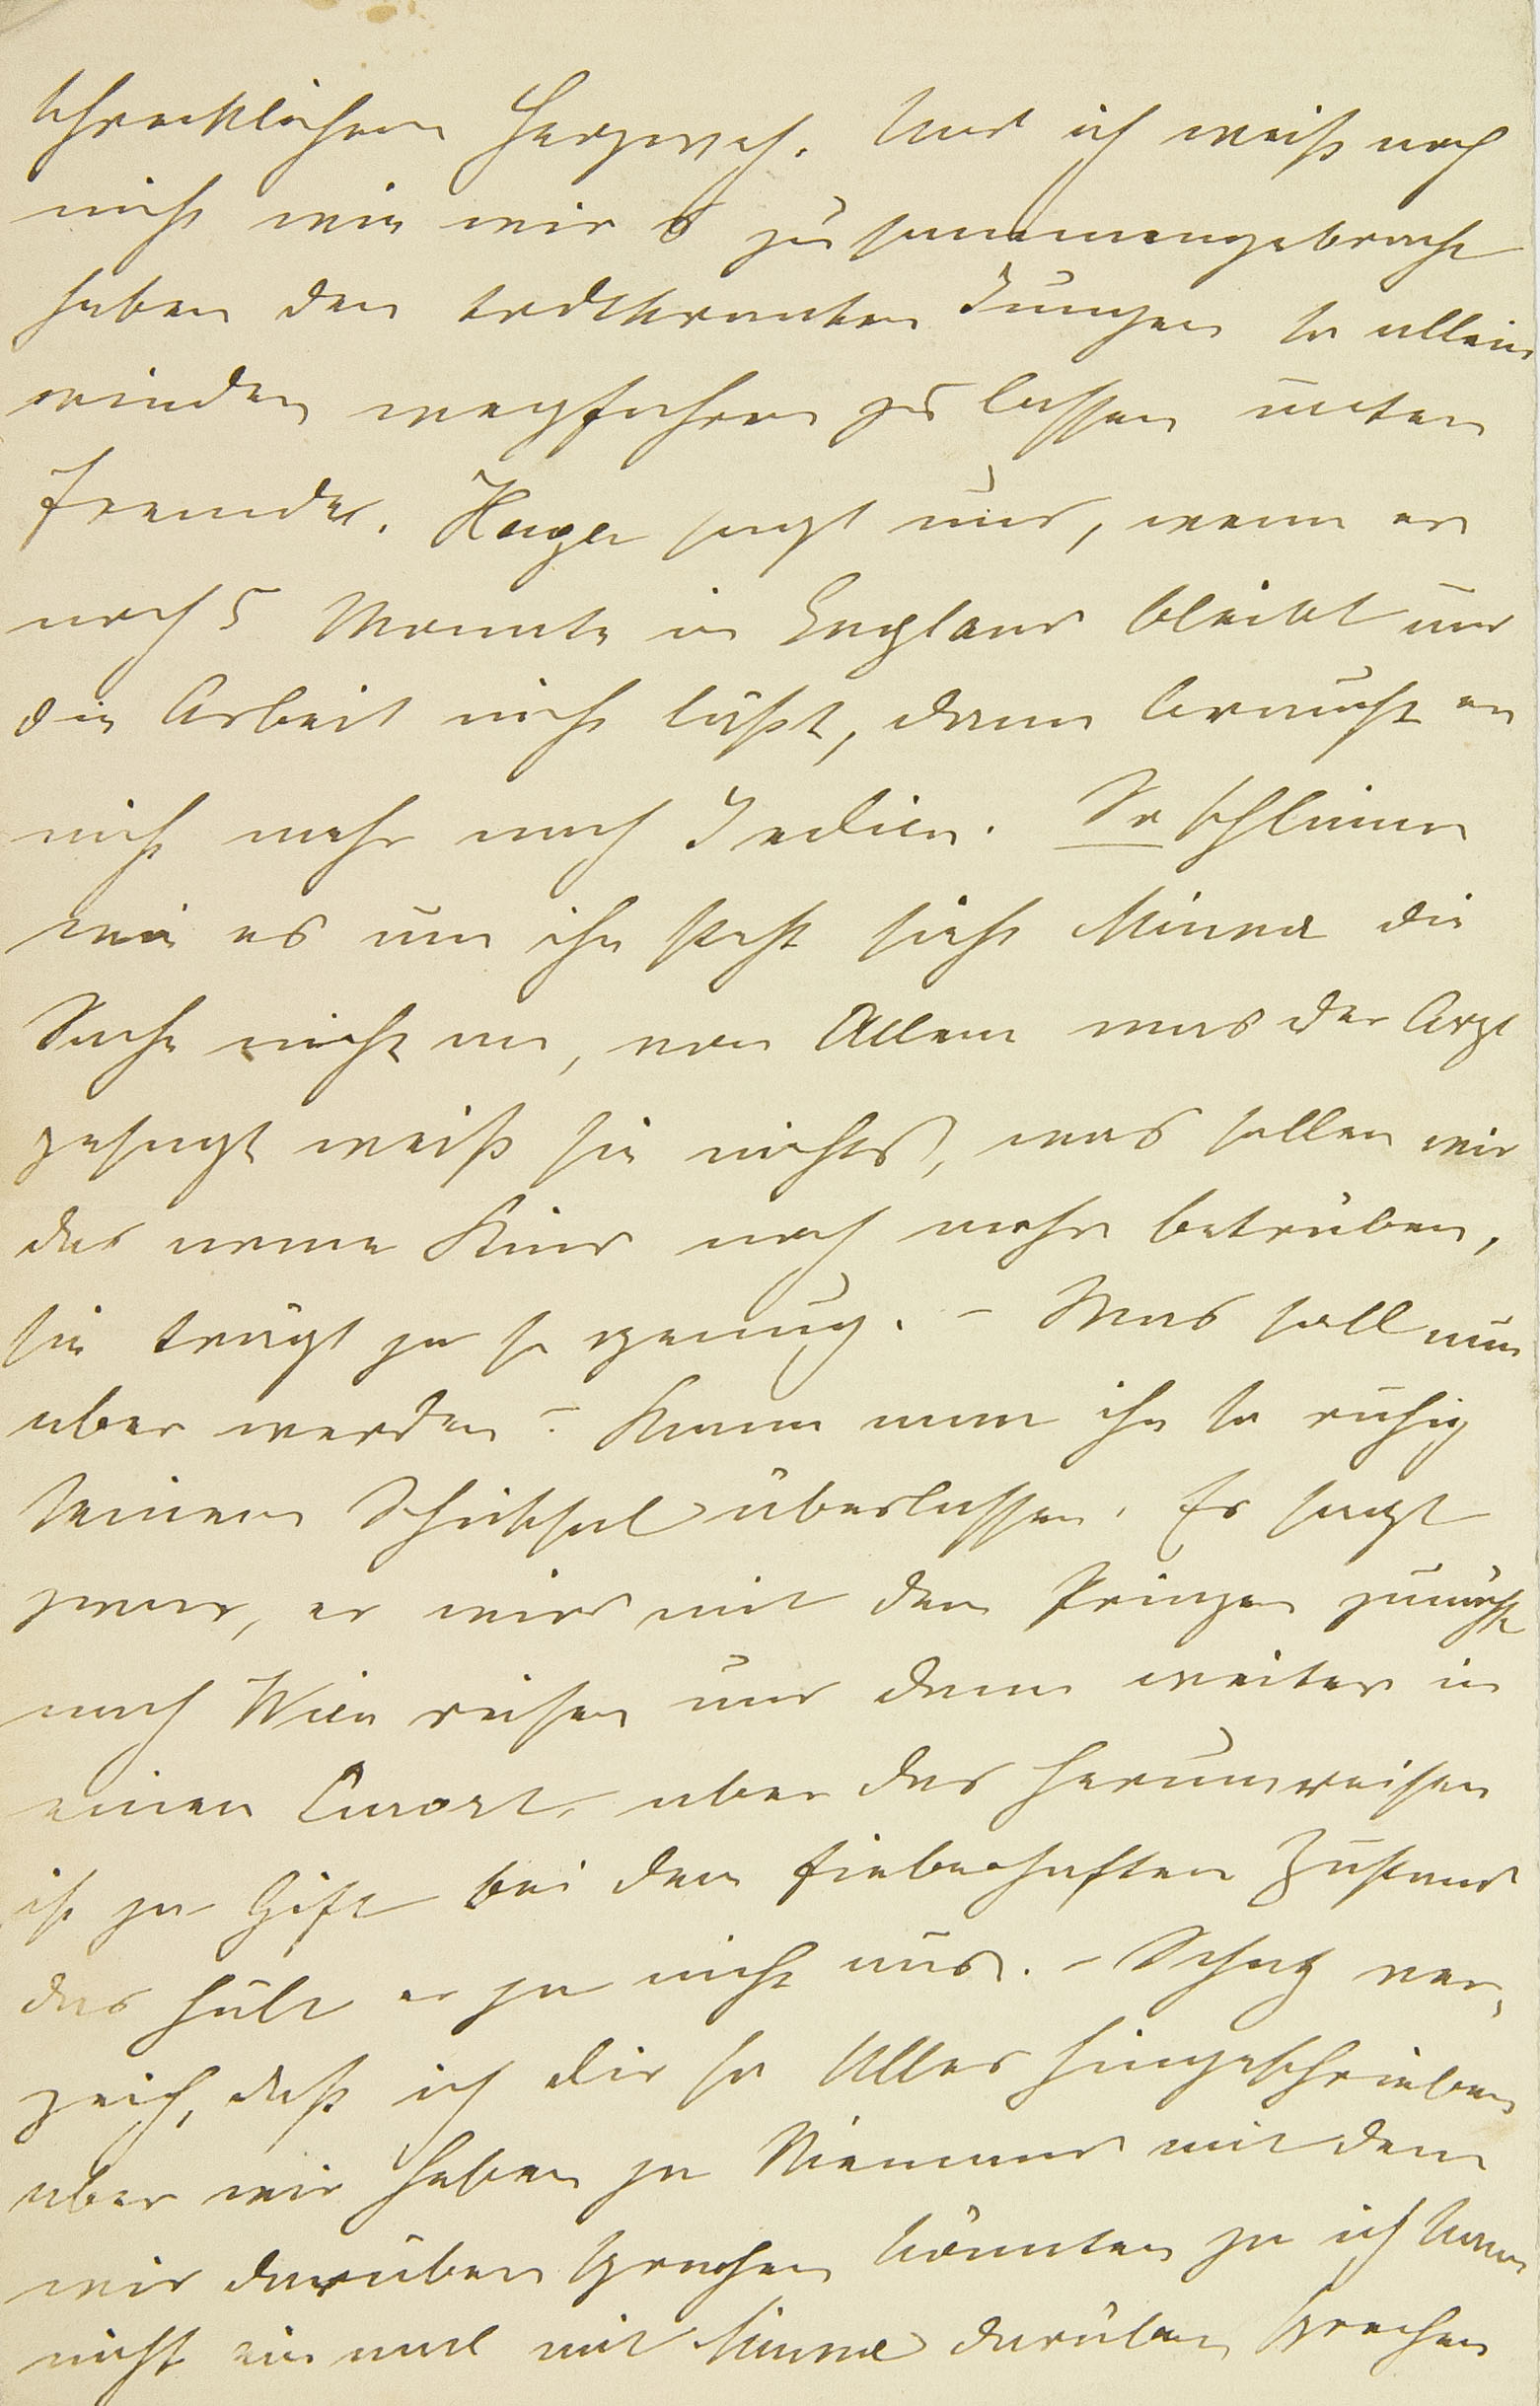 schrecklichem Herzweh. Und ich weiß noch
nicht wie wir's zusammengebracht
haben den todtkranken Jungen so allein
wieder wegfahren zu lassen unter
Fremde. Hager sagt uns, wenn er
noch 5 Monate in England bleibt und
die Arbeit nicht läßt, dann braucht er
nicht mehr nach Indien. So schlimm
wie es um ihn steht sieht Minna die
Sache nicht an, von Allem was der Arzt
gesagt weiß sie nichts, was sollen wir
das arme Kind noch mehr betrüben,
sie trägt ja so genug. – Was soll nun
aber werden? Kann man ihn so ruhig
seinem Schicksal überlassen. Er sagt
zwar, er wird mit dem Prinzen zunächst
nach Wien reisen und dann weiter in
einen Curort, aber das Herumreisen
ist ja Gift bei dem fieberhaften Zustand
das hält er ja nicht aus. – Schatz ver-
zeih, daß ich dir so Alles hingeschrieben
aber wir haben ja Niemand mit dem
wir darüber sprechen könnten ja ich kann
nicht einmal mit Minna darüber sprechen